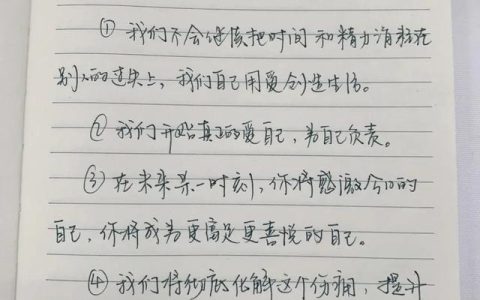 ① 我们不会继续把时间和精力消耗在
别人的过失上，我们自己用爱创造生活。
② 我们开始真正的爱自己，为自己负责。
③ 在未来某一时刻，你将感激今日的
自己，你将成为更富足更喜悦的自己。
④ 我们将彻底化解这个伤痛，提升